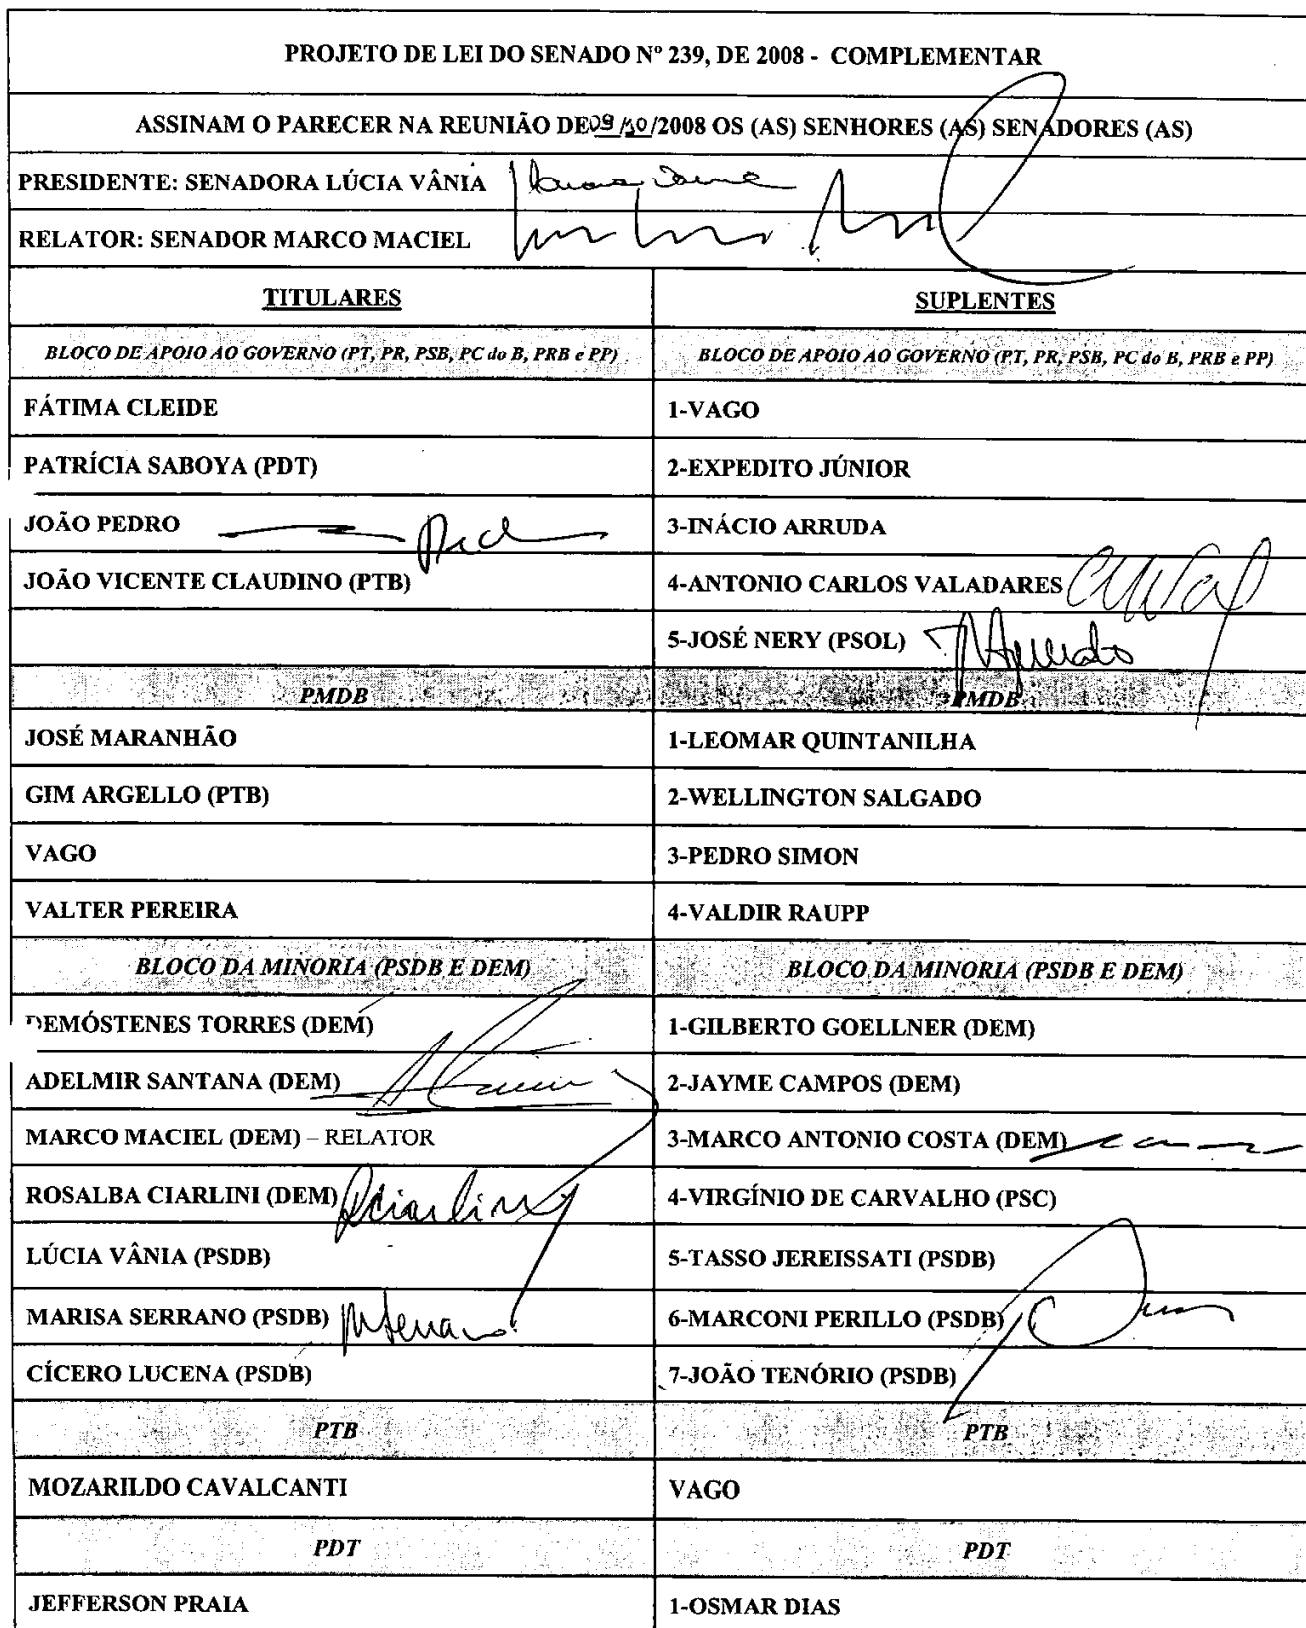 PROJETO DE LEI DO SENADO Nº 239, DE 2008 - COMPLEMENTAR
ASSINAM O PARECER NA REUNIÃO DE 09/10/2008 OS (AS) SENHORES (AS) SENADORES (AS)
PRESIDENTE: SENADORA LÚCIA VÂNIA
RELATOR: SENADOR MARCO MACIEL
TITULARES SUPLENTES
BLOCO DE APOIO AO GOVERNO (PT, PR, PSB, PC do B, PRB e PP) BLOCO DE APOIO AO GOVERNO (PT, PR, PSB, PC do B, PRB e PP)
FÁTIMA CLEIDE 1-VAGO
PATRÍCIA SABOYA (PDT) 2-EXPEDITO JÚNIOR
JOÃO PEDRO 3-INÁCIO ARRUDA
JOÃO VICENTE CLAUDINO (PTB) 4-ANTONIO CARLOS VALADARES
5-JOSÉ NERY (PSOL)
PMDB PMDB
JOSÉ MARANHÃO 1-LEOMAR QUINTANILHA
GIM ARGELLO (PTB) 2-WELLINGTON SALGADO
VAGO 3-PEDRO SIMON
VALTER PEREIRA 4-VALDIR RAUPP
BLOCO DA MINORIA (PSDB E DEM) BLOCO DA MINORIA (PSDB E DEM)
DEMÓSTENES TORRES (DEM) 1-GILBERTO GOELLNER (DEM)
ADELMIR SANTANA (DEM) 2-JAYME CAMPOS (DEM)
MARCO MACIEL (DEM) – RELATOR 3-MARCO ANTONIO COSTA (DEM)
ROSALBA CIARLINI (DEM) RCiarlini 4-VIRGÍNIO DE CARVALHO (PSC)
LÚCIA VÂNIA (PSDB) 5-TASSO JEREISSATI (PSDB)
MARISA SERRANO (PSDB) 6-MARCONI PERILLO (PSDB)
CÍCERO LUCENA (PSDB) 7-JOÃO TENÓRIO (PSDB)
PTB PTB
MOZARILDO CAVALCANTI VAGO
PDT PDT
JEFFERSON PRAIA 1-OSMAR DIAS